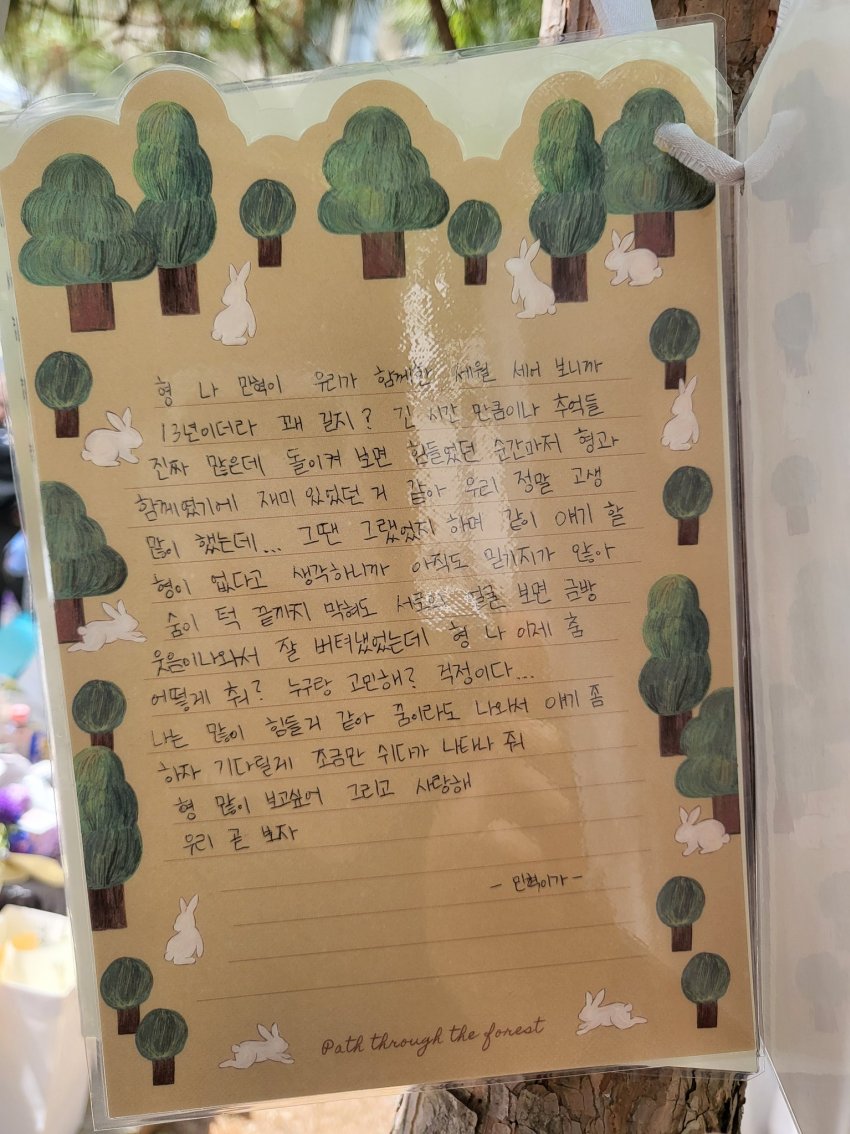 형 나 민혁이 우리가 함께한 세월 세어 보니까
13년이더라 꽤 길지? 긴 시간 만큼이나 추억들
진짜 많은데 돌이켜 보면 힘들었던 순간마저 형과
함께였기에 재미 있었던 거 같아 우리 정말 고생
많이 했는데... 그땐 그랬었지 하며 같이 얘기 할
형이 없다고 생각하니까 아직도 믿기지가 않아
숨이 턱 끝까지 막혀도 서로의 얼굴 보면 금방
웃음이나와서 잘 버텨냈었는데 형 나 이제 춤
어떻게 춰? 누구랑 고민해? 걱정이다...
나는 많이 힘들거 같아 꿈이라도 나와서 얘기 좀
하자 기다릴게 조금만 쉬다가 나타나 줘
형 많이 보고싶어 그리고 사랑해
우리 곧 보자
- 민혁이가 -
Path through the forest